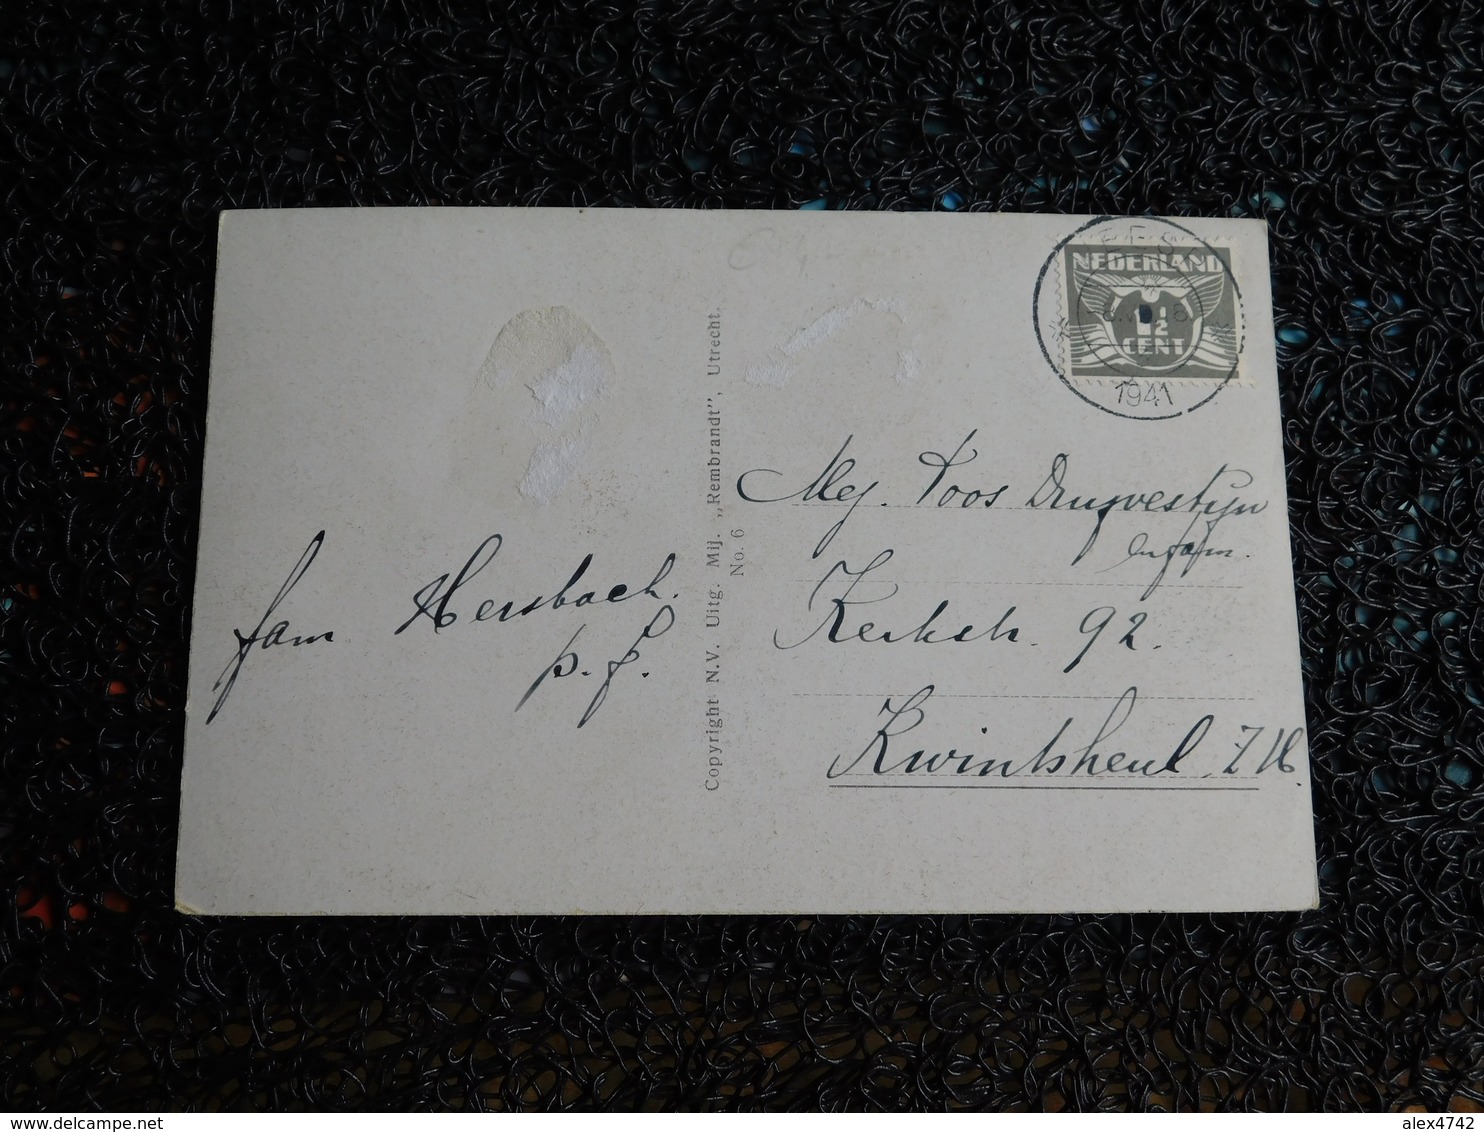 NEDERLAND
1½
CENT
1941
Mej. Toos Druyvestijn
en fam.
Kerkstr. 92.
Kwintsheul. Z.H.
fam Hersbach.
p.f.
Copyright N.V. Uitg. Mij. „Rembrandt”, Utrecht.
No. 6
www.delcampe.net
alex4742